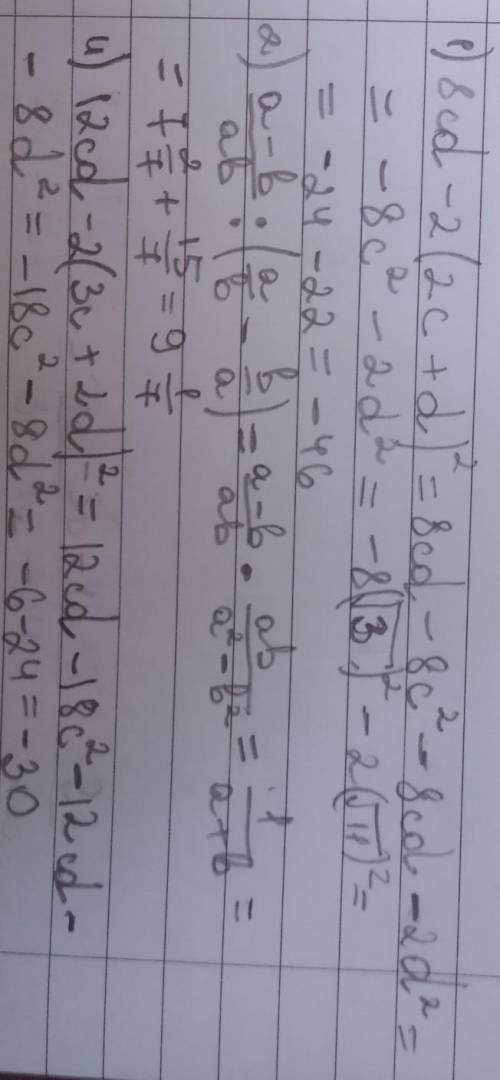 1) 8cd - 2(2c + d)² = 8cd - 8c² - 8cd - 2d² =
= - 8c² - 2d² = - 8(√3)² - 2(√11)² =
= - 24 - 22 = - 46
2) a-b/ab · (a/b - b/a) = a-b/ab · ab/a²-b² = 1/a+b =
= 7 2/7 + 15/7 = 9 1/7
4) 12cd - 2(3c + 2d)² = 12cd - 18c² - 12cd -
- 8d² = - 18c² - 8d² = - 6 - 24 = - 30